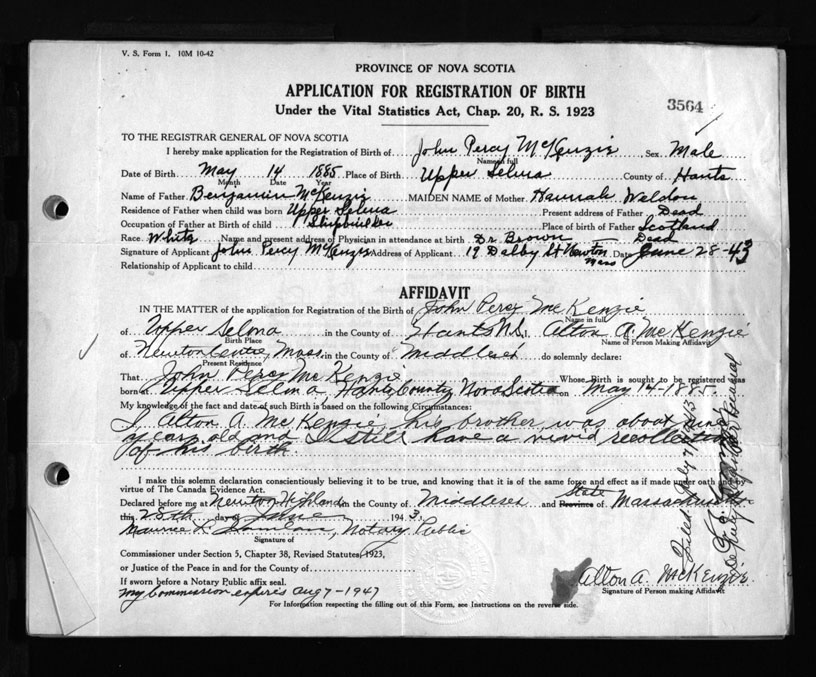 V. S. Form 1. 10M 10-42
PROVINCE OF NOVA SCOTIA
APPLICATION FOR REGISTRATION OF BIRTH
Under the Vital Statistics Act, Chap. 20, R. S. 1923
3564
TO THE REGISTRAR GENERAL OF NOVA SCOTIA
I hereby make application for the Registration of Birth of John Percy McKenzie Sex Male
Name in full
Date of Birth May 14 1885 Place of Birth Upper Selma County of Hants
Month Date Year
Name of Father Benjamin McKenzie MAIDEN NAME of Mother Hannah Weldon
Residence of Father when child was born Upper Selma Present address of Father Dead
Occupation of Father at Birth of child Shipbuilder Place of birth of Father Scotland
Race White Name and present address of Physician in attendance at birth Dr Brown — Dead
Signature of Applicant John Percy McKenzie Address of Applicant 19 Dalby St Newton Mass Date June 28-43
Relationship of Applicant to child
AFFIDAVIT
IN THE MATTER of the application for Registration of the Birth of John Percy McKenzie
Name in full
of Upper Selma in the County of Hants N.S. Alton A. McKenzie
Birth Place Name of Person Making Affidavit
of Newton Centre Mass in the County of Middlesex do solemnly declare:
Present Residence
That John Percy McKenzie Whose Birth is sought to be registered was
born at Upper Selma, Hants County, Nova Scotia on May 14-1885
My knowledge of the fact and date of such Birth is based on the following Circumstances:
I Alton A. McKenzie, his brother, was about nine
years old and I still have a vivid recollection
of his birth.
I make this solemn declaration conscientiously believing it to be true, and knowing that it is of the same force and effect as if made under oath and by
virtue of The Canada Evidence Act.
Declared before me at Newton Highlands in the County of Middlesex and State Province of Massachusetts
this 28th day of June 1943
Maurice L. Notary Public
Signature of
Commissioner under Section 5, Chapter 38, Revised Statutes, 1923,
or Justice of the Peace in and for the County of
If sworn before a Notary Public affix seal.
My commission expires Aug 7-1947
Alton A. McKenzie
Signature of Person making Affidavit
For Information respecting the filling out of this Form, see Instructions on the reverse side.
Filed July 7 1943
Deputy Registrar General